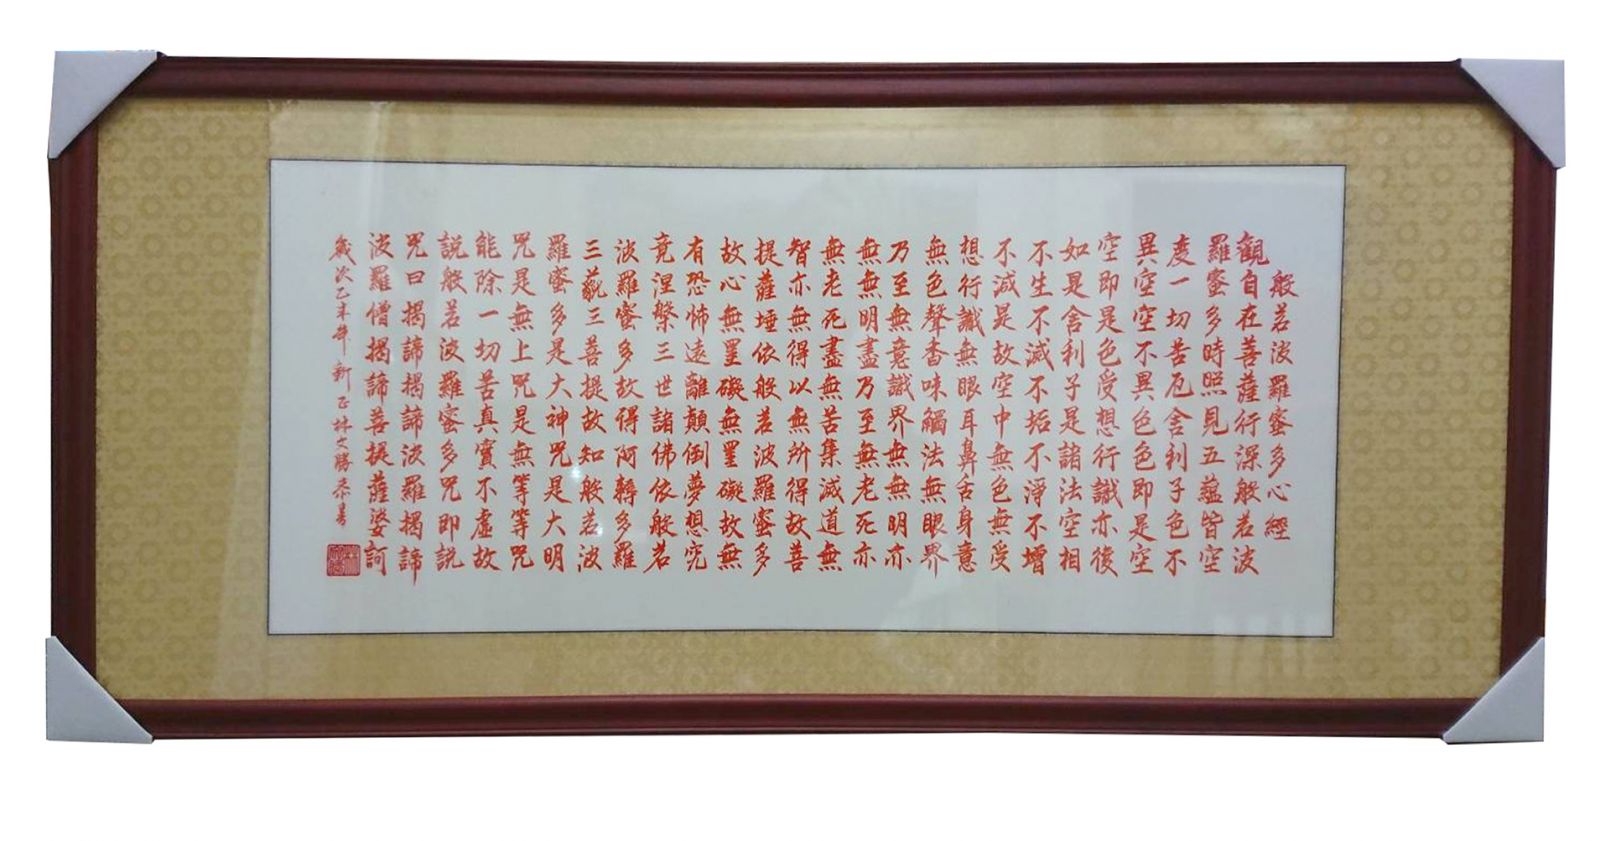 般若波羅蜜多心經
觀自在菩薩行深般若波
羅蜜多時照見五蘊皆空
度一切苦厄舍利子色不
異空空不異色色即是空
空即是色受想行識亦復
如是舍利子是諸法空相
不生不滅不垢不淨不增
不減是故空中無色無受
想行識無眼耳鼻舌身意
無色聲香味觸法無眼界
乃至無意識界無無明亦
無無明盡乃至無老死亦
無老死盡無苦集滅道無
智亦無得以無所得故菩
提薩埵依般若波羅蜜多
故心無罣礙無罣礙故無
有恐怖遠離顛倒夢想究
竟涅槃三世諸佛依般若
波羅蜜多故得阿耨多羅
三藐三菩提故知般若波
羅蜜多是大神咒是大明
咒是無上咒是無等等咒
能除一切苦真實不虛故
說般若波羅蜜多咒即說
咒曰揭諦揭諦波羅揭諦
波羅僧揭諦菩提薩婆訶
歲次乙未年新正林文勝恭書